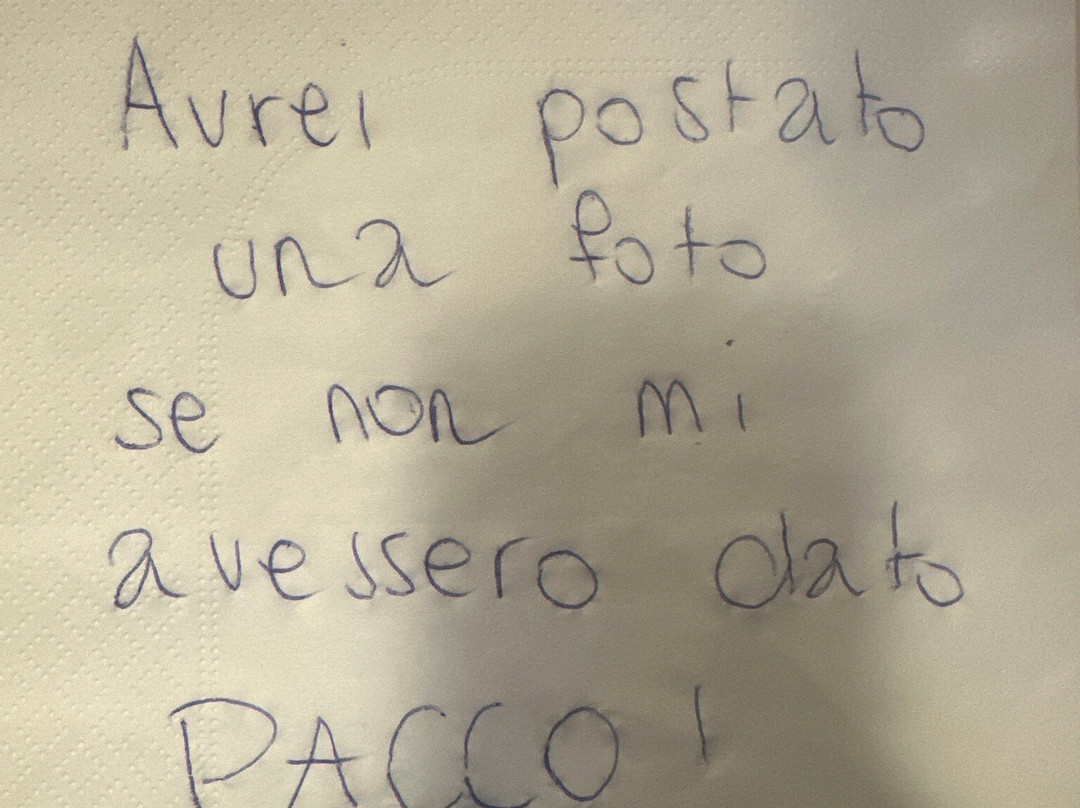 Avrei postato
una foto
se non mi
avessero dato
PACCO!